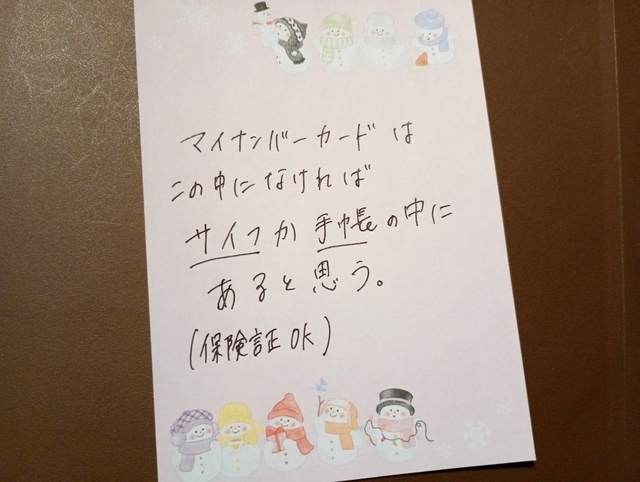 マイナンバーカードは
この中になければ
サイフか手帳の中に
あると思う。
(保険証OK)